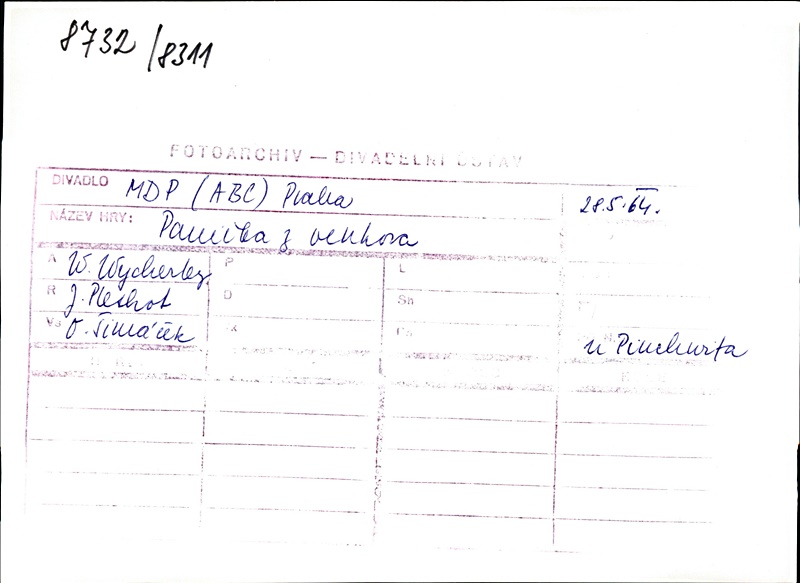 8732 / 8311
FOTOARCHIV — DIVADELNÍ ÚSTAV
DIVADLO MDP (ABC) Praha 28.5.64.
NÁZEV HRY: Panička z venkova
A W. Wycherley P L
R J. Pleskot D Sh
Vs O. Šimáček
u Pinchwifa